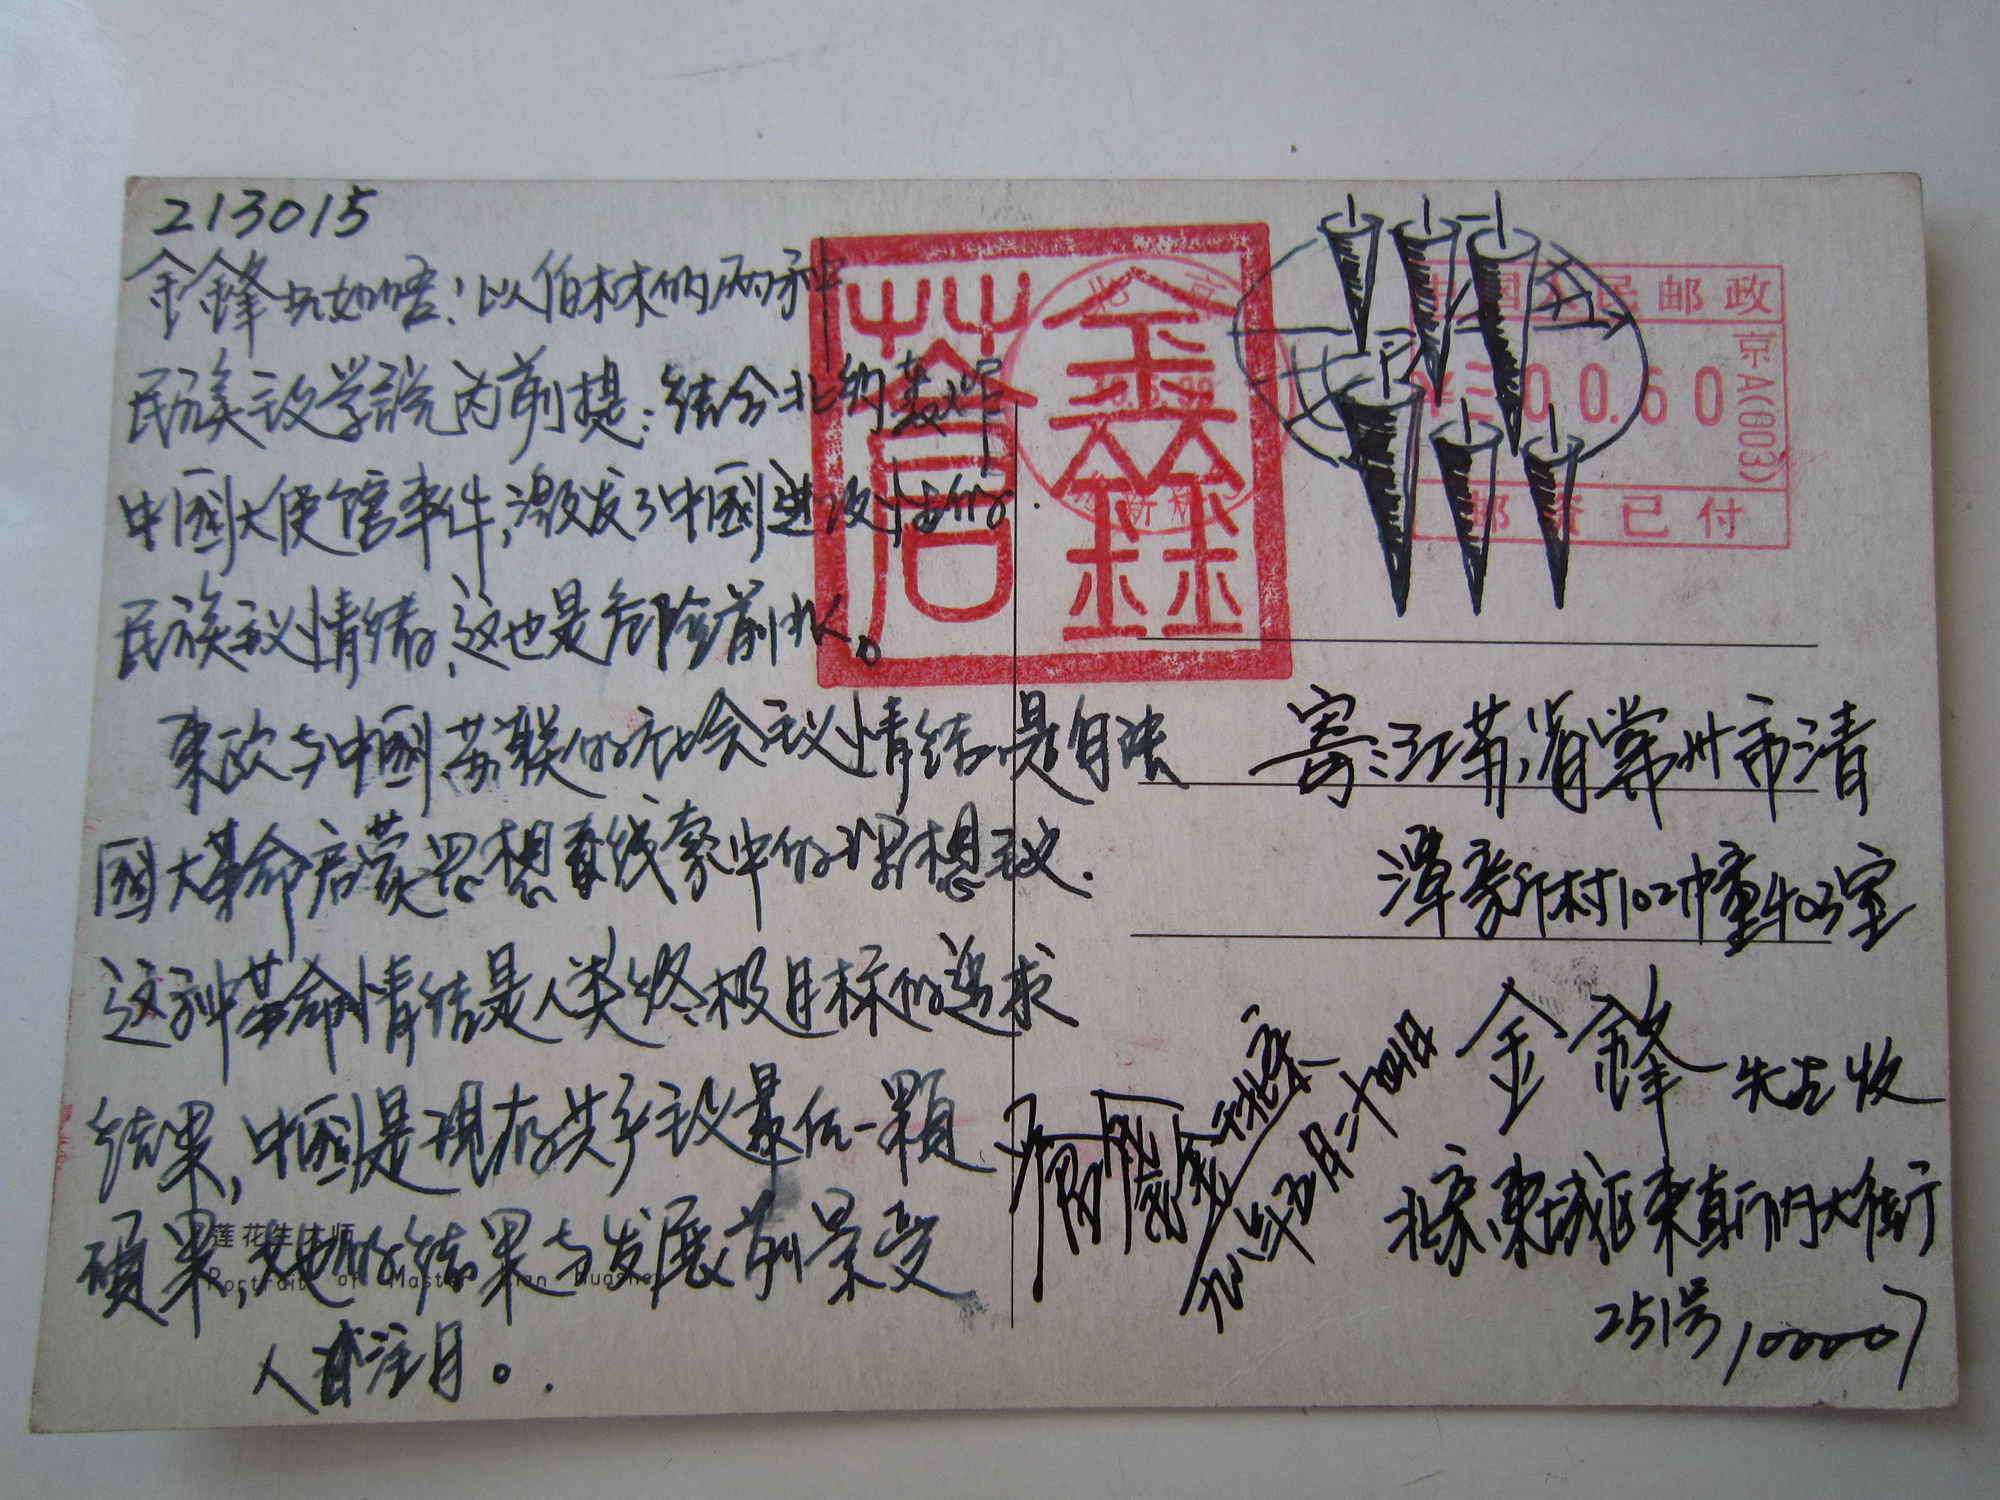 213015
金鋒兄如晤！以伯林的两种
民族主义学説为前提：结合北约轰炸
中國大使馆事件，激发了中國进攻性的
民族主义情绪，这也是危险前兆。
東欧与中國、苏联的社会主义情结是自法
國大革命启蒙思想素线索中的理想主义.
这种革命情结是人类终极目标的追求
结果，中國是現存共产主义最后一顆
碩果，她的结果与发展前景受
人注目。
莲花生大师
Portrait of Master Lian Huashe
北京
中国人民邮政
京A(003)
00.60
邮资已付
寄：江苏省常州市清
潭新村102幢403室
金鋒 先生收
北京東城区東直门内大街
251号，100007
於北京
九九年五月二十四日